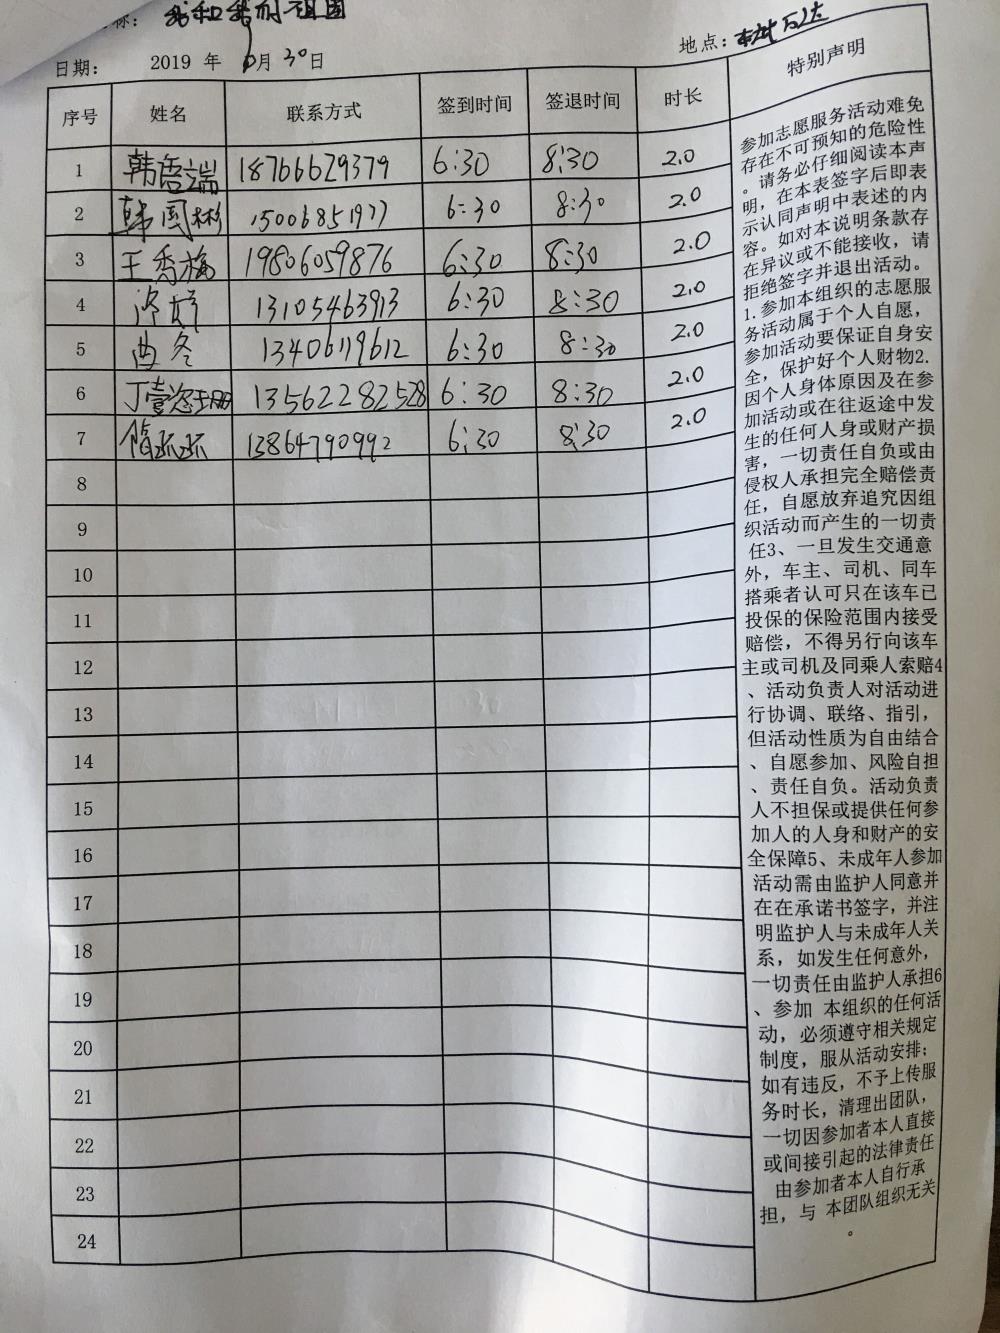 称： 我和我的祖国
日期： 2019 年 月 30 日 地点：
序号 姓名 联系方式 签到时间 签退时间 时长 特别声明
1 韩 端 18766629379 6:30 8:30 2.0
2 韩国彬 15006851977 6:30 8:30 2.0
3 王秀梅 19806059876 6:30 8:30 2.0
4 13105463913 6:30 8:30 2.0
5 曲冬 13406119612 6:30 8:30 2.0
6 13562282528 6:30 8:30 2.0
7 13864790992 6:30 8:30 2.0
8
9
10
11
12
13
14
15
16
17
18
19
20
21
22
23
24
参加志愿服务活动难免
存在不可预知的危险性
。请务必仔细阅读本声
明，在本表签字后即表
示认同声明中表述的内
容。如对本说明条款存
在异议或不能接收，请
拒绝签字并退出活动。
1.参加本组织的志愿服
务活动属于个人自愿，
参加活动要保证自身安
全，保护好个人财物2.
因个人身体原因及在参
加活动或在往返途中发
生的任何人身或财产损
害，一切责任自负或由
侵权人承担完全赔偿责
任，自愿放弃追究因组
织活动而产生的一切责
任3、一旦发生交通意
外，车主、司机、同车
搭乘者认可只在该车已
投保的保险范围内接受
赔偿，不得另行向该车
主或司机及同乘人索赔4
、活动负责人对活动进
行协调、联络、指引，
但活动性质为自由结合
、自愿参加、风险自担
、责任自负。活动负责
人不担保或提供任何参
加人的人身和财产的安
全保障5、未成年人参加
活动需由监护人同意并
在在承诺书签字，并注
明监护人与未成年人关
系，如发生任何意外，
一切责任由监护人承担6
、参加 本组织的任何活
动，必须遵守相关规定
制度，服从活动安排；
如有违反，不予上传服
务时长，清理出团队，
一切因参加者本人直接
或间接引起的法律责任
由参加者本人自行承
担，与 本团队组织无关
。